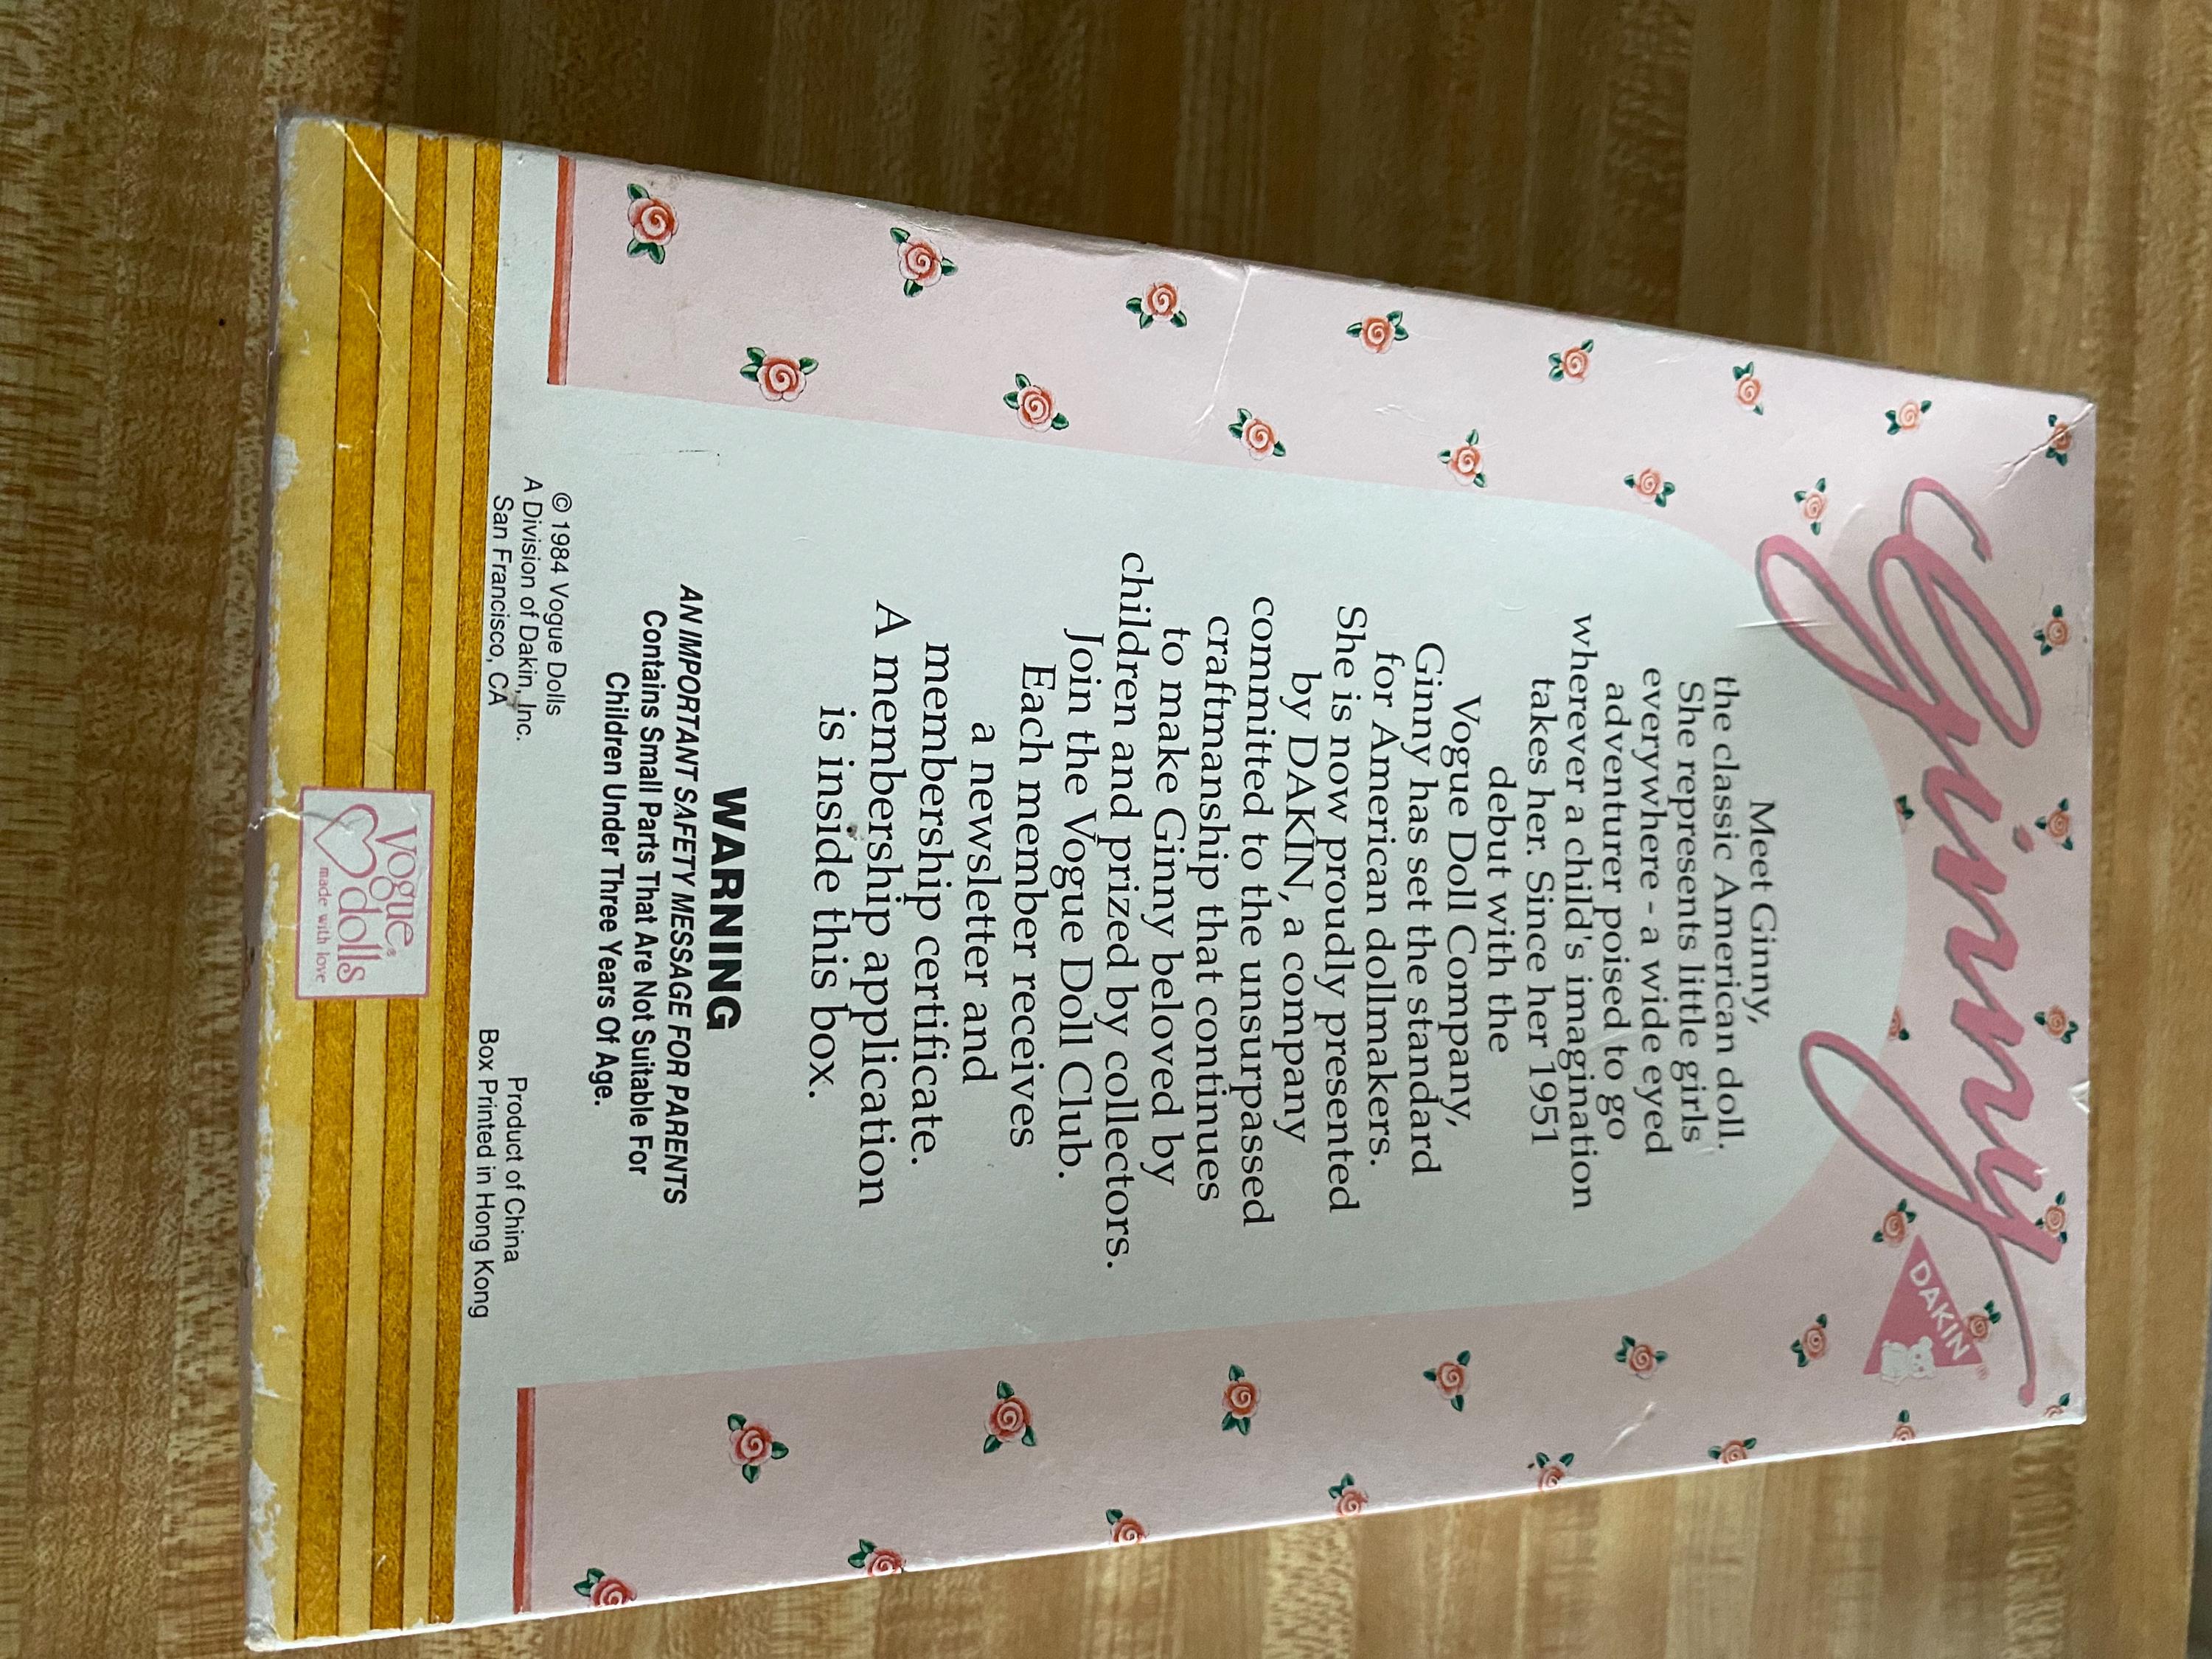 Ginny
DAKIN®
Meet Ginny,
the classic American doll.
She represents little girls
everywhere - a wide eyed
adventurer poised to go
wherever a child's imagination
takes her. Since her 1951
debut with the
Vogue Doll Company,
Ginny has set the standard
for American dollmakers.
She is now proudly presented
by DAKIN, a company
committed to the unsurpassed
craftmanship that continues
to make Ginny beloved by
children and prized by collectors.
Join the Vogue Doll Club.
Each member receives
a newsletter and
membership certificate.
A membership application
is inside this box.
WARNING
AN IMPORTANT SAFETY MESSAGE FOR PARENTS
Contains Small Parts That Are Not Suitable For
Children Under Three Years Of Age.
© 1984 Vogue Dolls
A Division of Dakin, Inc.
San Francisco, CA
Product of China
Box Printed in Hong Kong
Vogue®
dolls
made with love